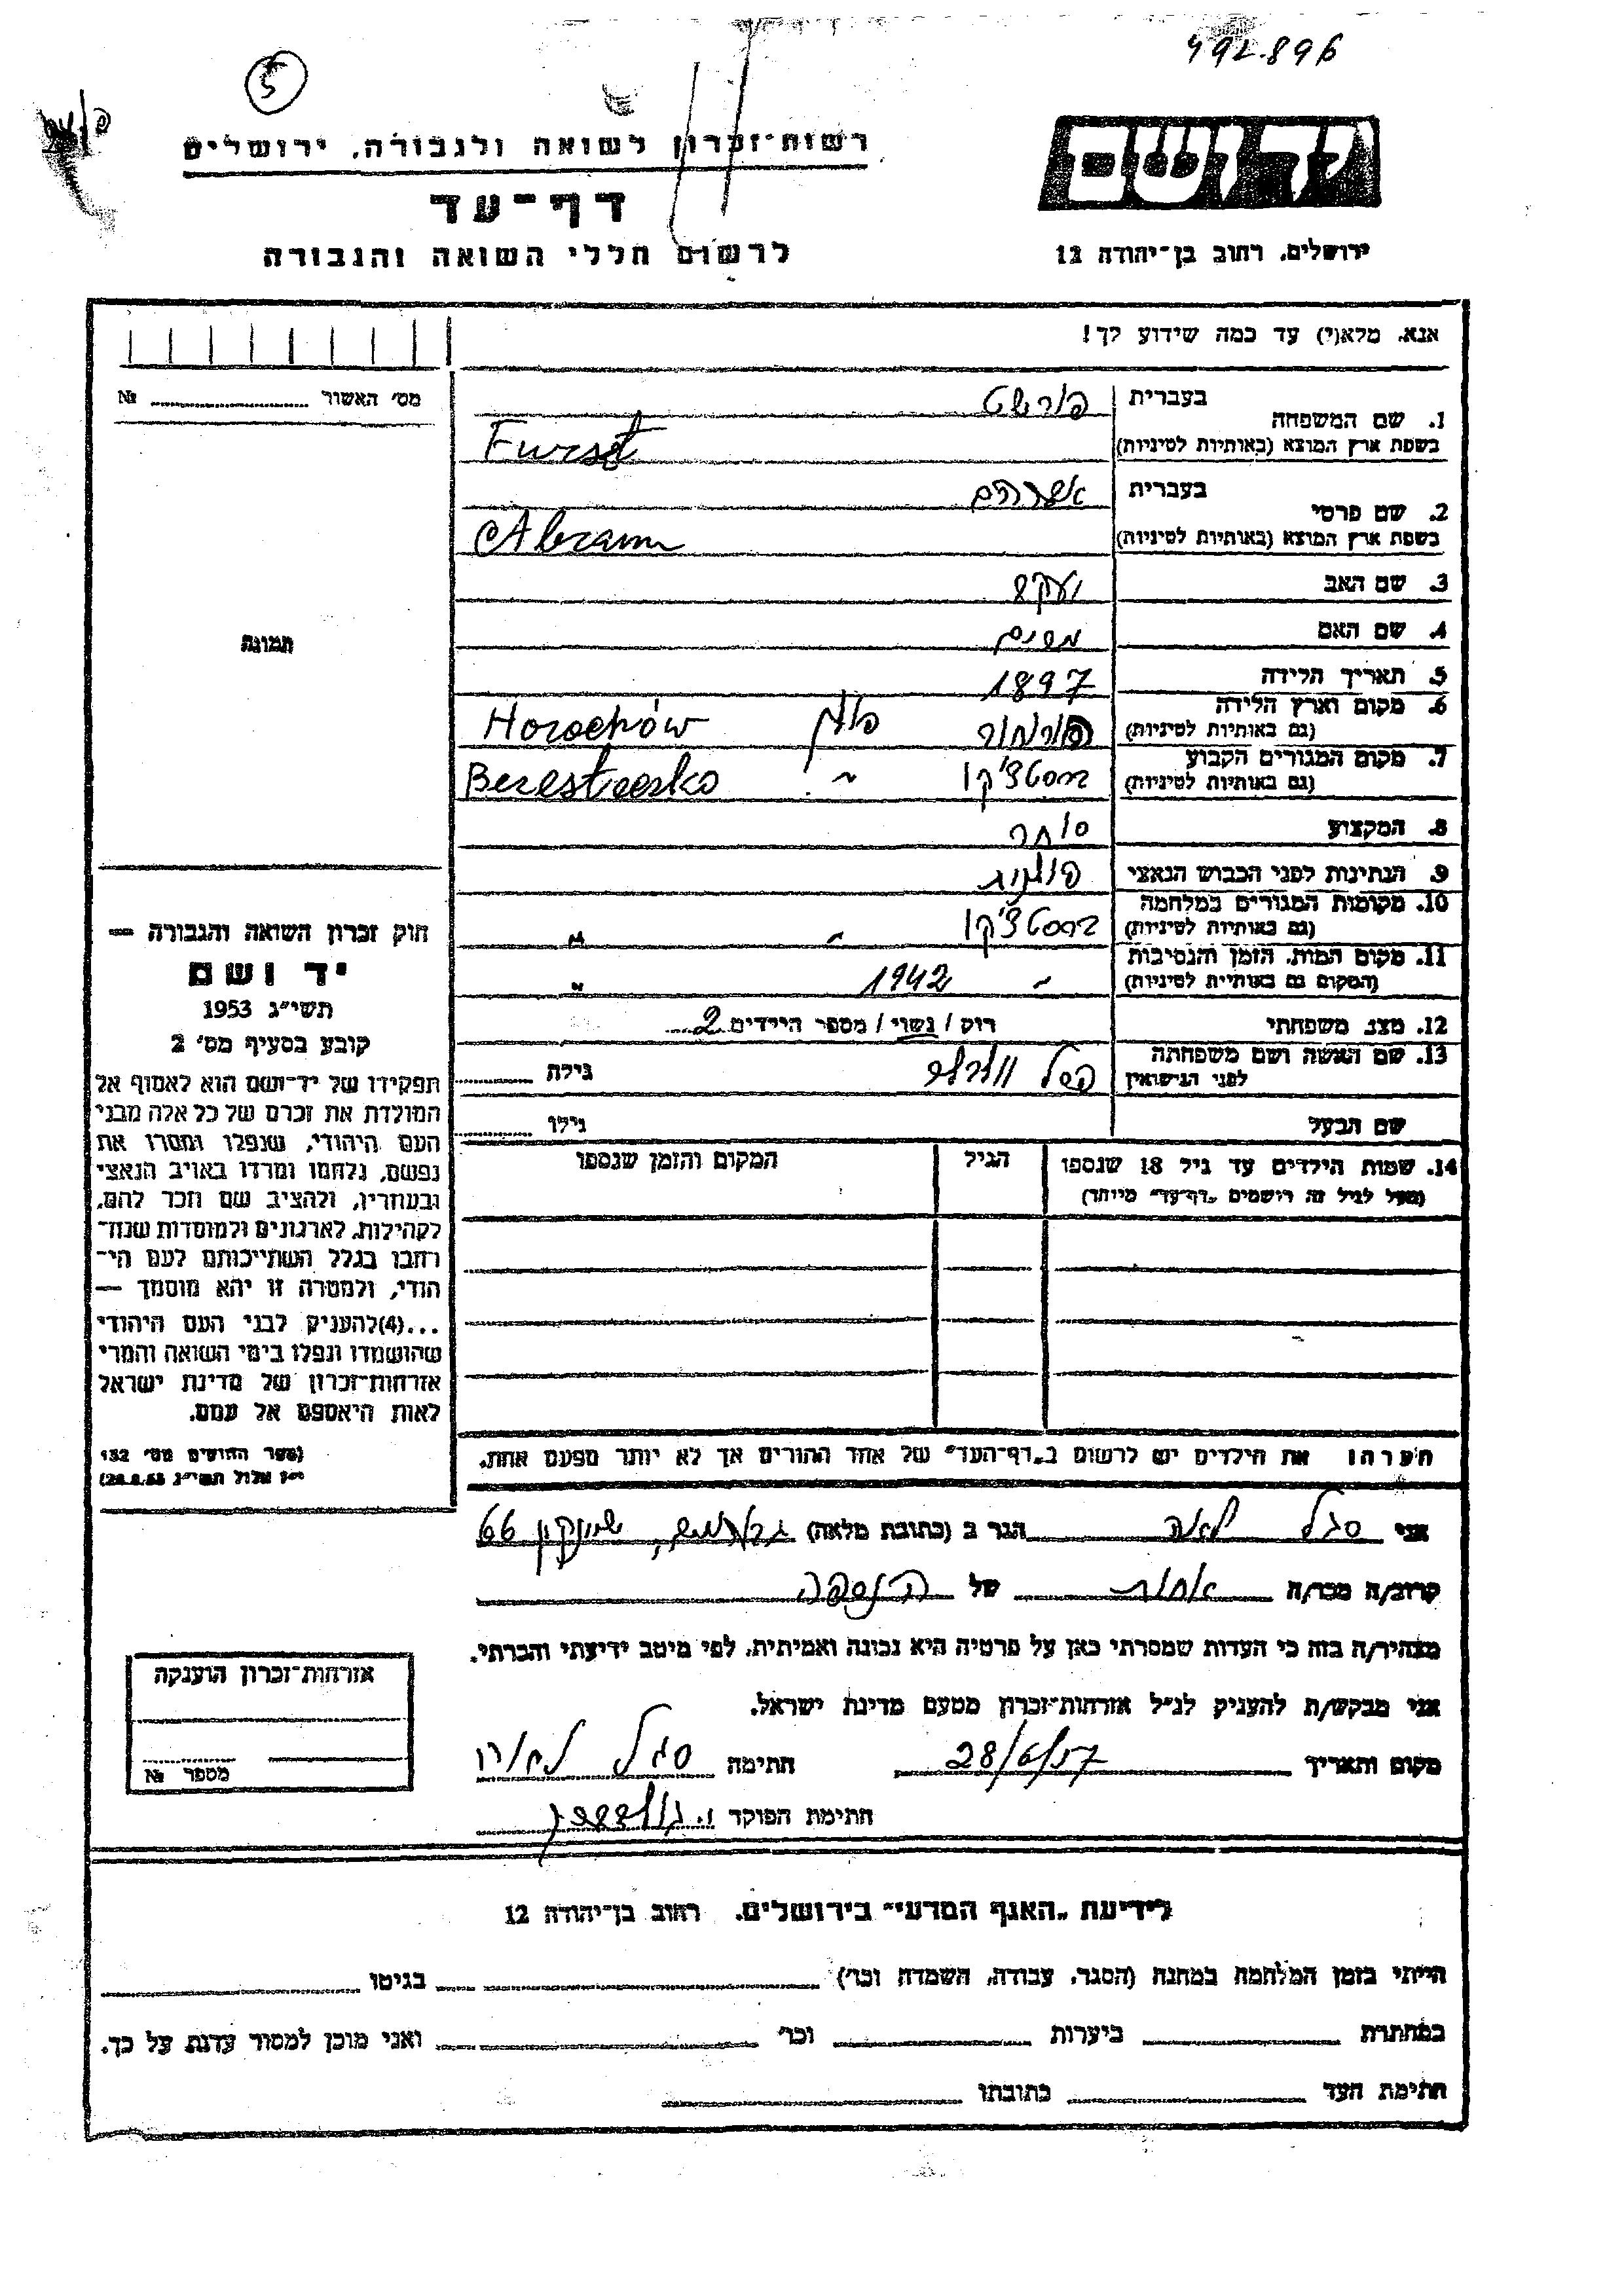 492.896
5
יד ושם
רשות־זכרון לשואה ולגבורה, ירושלים
דף־עד
לרשום חללי השואה והגבורה
ירושלים, רחוב בן־יהודה 12
אנא, מלא(י) עד כמה שידוע לך!
מס' האשור № 
1. שם המשפחה בעברית פורשט
בשפת ארץ המוצא (באותיות לטיניות) Furszt
2. שם פרטי בעברית אברהם
בשפת ארץ המוצא (באותיות לטיניות) Abram
3. שם האב יעקב
4. שם האם מרים
תמונה
5. תאריך הלידה 1897
6. מקום וארץ הלידה (גם באותיות לטיניות) פולין Horochów
7. מקום המגורים הקבוע (גם באותיות לטיניות) ברסטצ'קו " Beresteczko
8. המקצוע סוחר
9. הנתינות לפני הכבוש הנאצי פולנית
10. מקומות המגורים במלחמה (גם באותיות לטיניות) ברסטצ'קו " "
11. מקום המות, הזמן והנסיבות (המקום גם באותיות לטיניות) " 1942 "
12. מצב משפחתי רוק / נשוי / מספר הילדים 2
13. שם האשה ושם משפחתה לפני הנישואין גילה
שם הבעל גילו
14. שמות הילדים עד גיל 18 שנספו הגיל המקום והזמן שנספו
(מעל לגיל זה רושמים "דף־עד" מיוחד)
הערה: את הילדים יש לרשום ב"דף־העד" של אחד ההורים אך לא יותר מפעם אחת.
חוק זכרון השואה והגבורה —
יד ושם
תשי"ג 1953
קובע בסעיף מס' 2
תפקידו של יד־ושם הוא לאסוף אל
המולדת את זכרם של כל אלה מבני
העם היהודי, שנפלו ומסרו את
נפשם, נלחמו ומרדו באויב הנאצי
ובעוזריו, ולהציב שם וזכר להם,
לקהילות, לארגונים ולמוסדות שנח־
רבו בגלל השתייכותם לעם הי־
הודי, ולמטרה זו יהא מוסמך —
...(4) להעניק לבני העם היהודי
שהושמדו ונפלו בימי השואה והמרי
אזרחות־זכרון של מדינת ישראל
לאות היאספם אל עמם.
(ספר החוקים מס' 132
י"ז אלול תשי"ג 28.8.53)
אני סגל לאה הגר ב (כתובת מלאה) גבעתיים, שינקין 66
קרוב/ה מכר/ה אחות של הנספה
מצהיר/ה בזה כי העדות שמסרתי כאן על פרטיה היא נכונה ואמיתית, לפי מיטב ידיעתי והכרתי.
אני מבקש/ת להעניק לנ"ל אזרחות־זכרון מטעם מדינת ישראל.
מקום ותאריך 28/6/57 חתימה סגל לאה
חתימת הפוקד
אזרחות־זכרון הוענקה
מספר №
לידיעת "האגף המדעי" בירושלים, רחוב בן־יהודה 12
הייתי בזמן המלחמה במחנה (הסגר, עבודה, השמדה וכו') בגיטו
במחתרת ביערות וכו' ואני מוכן למסור עדות על כך.
חתימת העד כתובתו